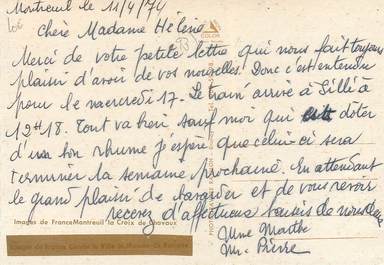 Montreuil le 11/4/74
Chère Madame Hélène
Merci de votre petite lettre qui nous fait toujours
plaisir d'avoir de vos nouvelles. Donc c'est entendu
pour le mercredi 17. Le train arrive à Sillé à
12H18. Tout va bien sauf moi qui est dôter
d'un bon rhume j'espère que celui-ci sera
terminer la semaine prochaine. En attendant
le grand plaisir de bavarder et de vous revoir
recevez d'affectueux baisers de nous deux
Mme Marthe
Mr. Pierre
COLOR
Images de France Montreuil la Croix de Chavaux